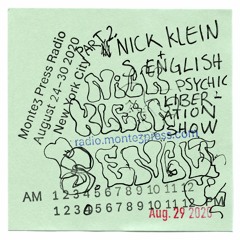 Monte3 Press Radio
August 24–30 2020
New York City
PART 2
NICK KLEIN
+
ENGLISH
PSYCHIC
LIBER-
ATION
SHOW
NICK
KLEIN
radio.monte3press.com
AM 1 2 3 4 5 6 7 8 9 10 11 12
1 2 3 4 5 6 7 8 9 10 11 12 PM
Aug. 29 2020